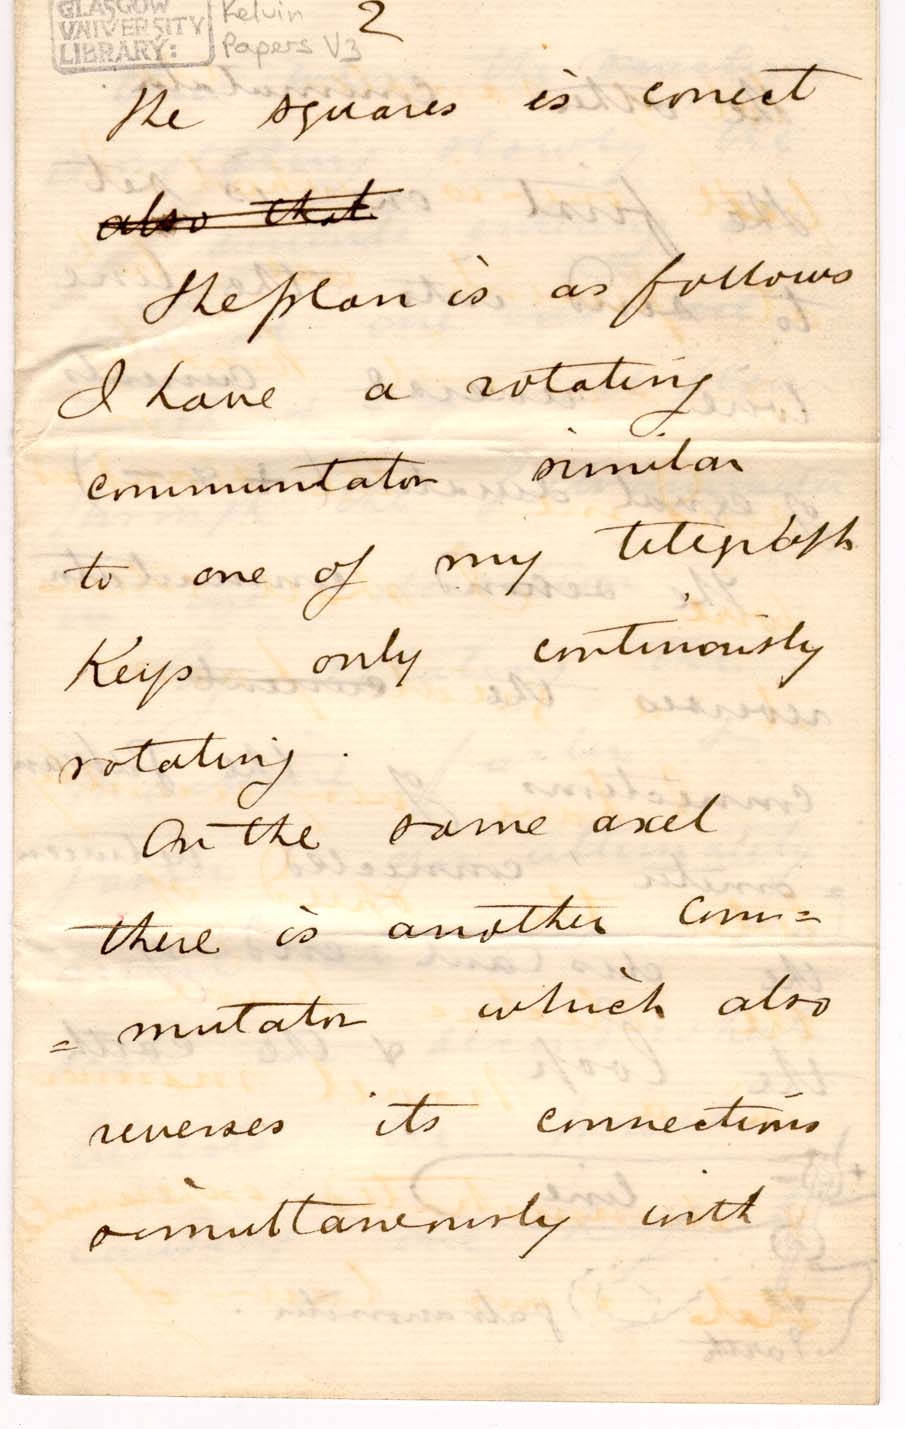 GLASGOW
UNIVERSITY
LIBRARY:
Kelvin
Papers V3
2
the squares is correct
also that
The plan is as follows
I have a rotating
communtator similar
to one of my telegraph
Keys only continously
rotating.
On the same axel
there is another com=
=mutator which also
reverses its connections
simultaneously with